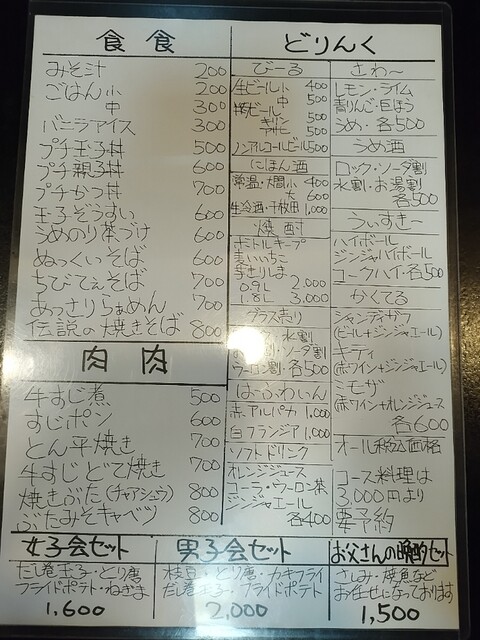 食食
みそ汁 200
ごはん 小 200
中 300
バニラアイス 300
プチ玉子丼 500
プチ親子丼 600
プチかつ丼 700
玉子ぞうすい 600
うめのり茶づけ 600
ぬっくいそば 600
ちびてぇそば 700
あっさりらぁめん 700
伝説の焼きそば 800
肉肉
牛すじ煮 500
すじポン 600
とん平焼き 700
牛すじどて焼き 700
焼きぶた(チャアシュウ) 800
ぶたみそキャベツ 800
どりんく
びーる
生ビール 小 400
中 500
ビール
キリン 500
500
ノンアルコールビール 500
にほん酒
常温・大関 小 400
大 600
生冷酒・千枚田 1,000
焼酎
ボトルキープ
麦いいちこ
芋きりしま
0.9L 2,000
1.8L 3,000
グラス売り
水割
ソーダ割
ウーロン割 各500
はーふわいん
赤アルパカ 1,000
白フランジア 1,000
ソフトドリンク
オレンジジュース
コーラ・ウーロン茶
ジンジャエール
各400
さわ〜
レモン・ライム
青りんご・巨ほう
うめ・各500
うめ酒
ロック・ソーダ割
水割・お湯割
各500
うぃすきー
ハイボール
ジンジャハイボール
コークハイ・各500
かくてる
シャンディガフ
(ビール+ジンジャエール)
キティ
(赤ワイン+ジンジャエール)
ミモザ
(赤ワイン+オレンジジュース
各600
オール税込価格
コース料理は
3,000円より
要予約
女子会セット
だし巻玉子・とり磨
フライドポテト・ねぎま
1,600
男子会セット
枝豆・とり磨・カキフライ
だし巻玉子・フライドポテト
2,000
お父さんの晩酌セット
さしみ・焼魚など
お任せになっております
1,500